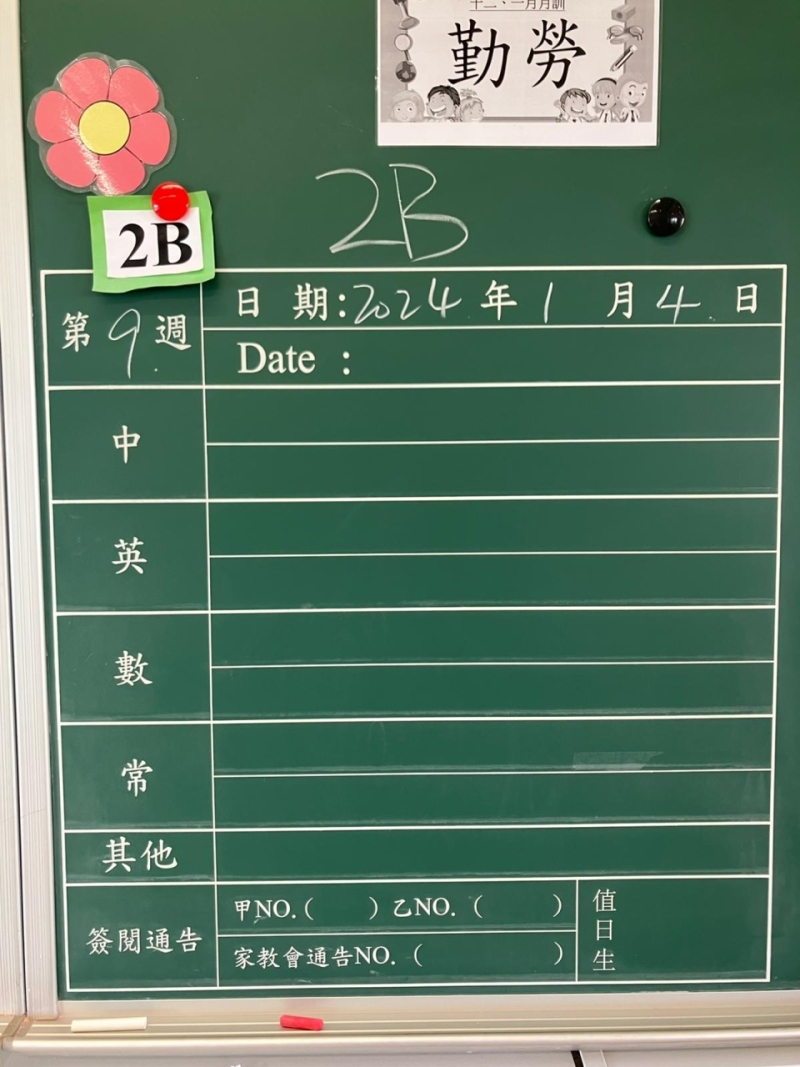 十二、一月月訓
勤勞
2B
2B
第9週
日 期:2024年1月4日
Date :
中
英
數
常
其他
簽閱通告
甲NO.( ) 乙NO.( )
家教會通告NO.( )
值日生